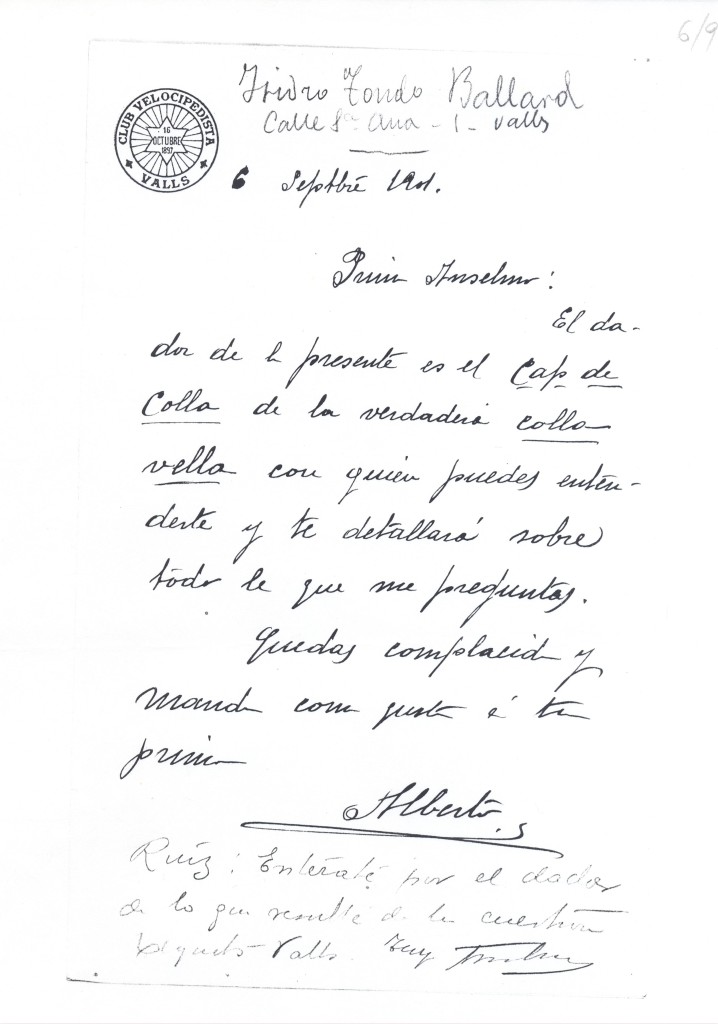 6/9
Isidro Tondo Ballard
Calle Sta Ana - 1 - Valls
CLUB VELOCIPEDISTA
16
OCTUBRE
1897
VALLS
6 Septbre 1901.
Primo Anselmo:
El da-
dor de la presente es el Cap de
Colla de la verdadera colla
vella con quien puedes enten-
derte y te detallará sobre
todo lo que me preguntas.
Quedas complacido y
manda como guste á tu
primo
Alberto
Ruíz: Entérate por el dador
de lo que resulte de la cuestión
Xiquets Valls.